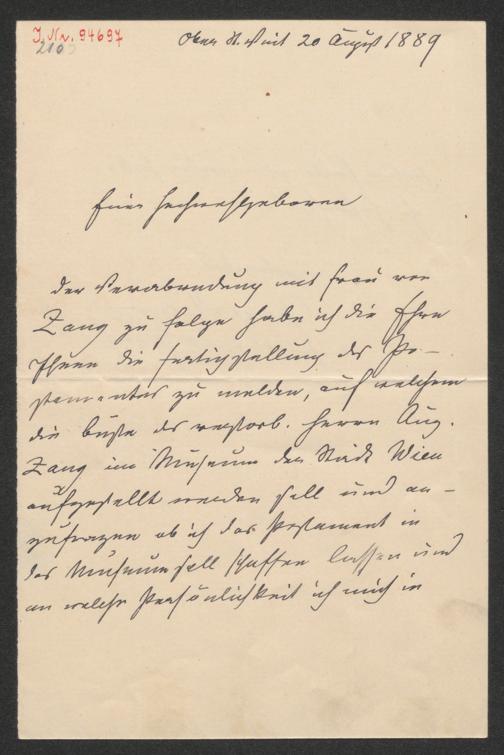 I.Nr. 94697
210
Ober St. Veit 20 August 1889
Euer Hochwohlgeboren
Der Verabredung mit Frau von
Zang zu folge habe ich die Ehre
Ihnen die fertigstellung des Po-
stamentes zu melden, auf welchem
die büste des verstorb. Herrn Aug.
Zang im Museum der Stadt Wien
aufgestellt werden soll und an-
zufragen ob ich das Postament in
das Museum soll schaffen lassen und
an welche Persönlichkeit ich mich in